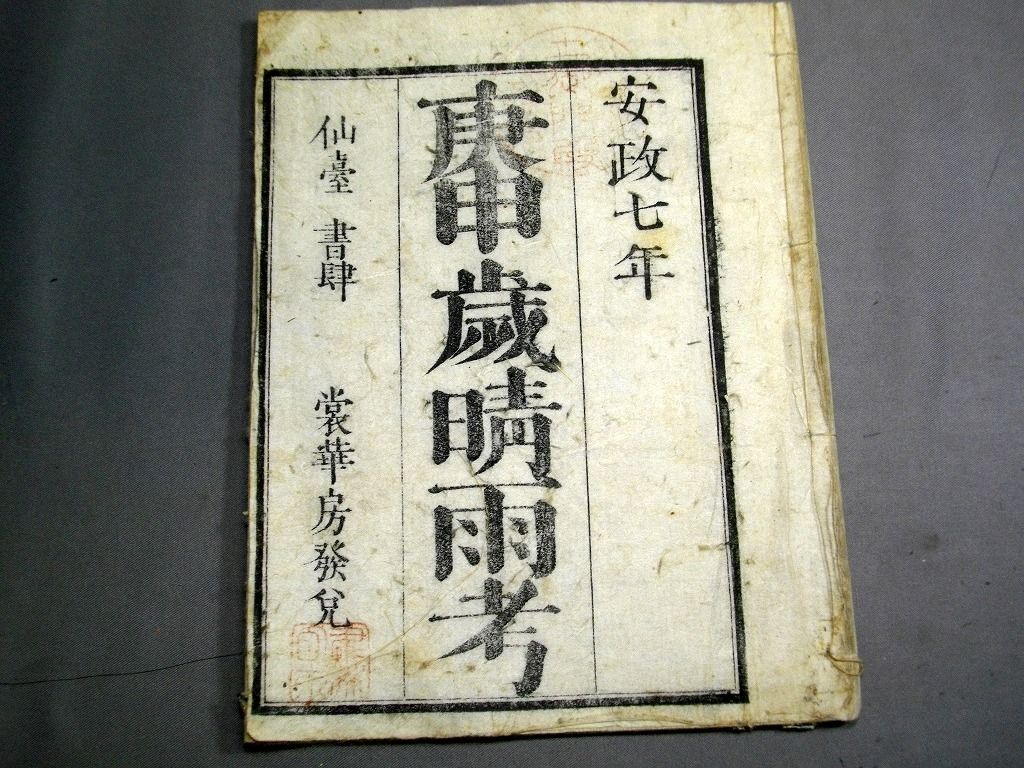 安政七年
庚申歲晴雨考
仙臺 書肆 裳華房發兌